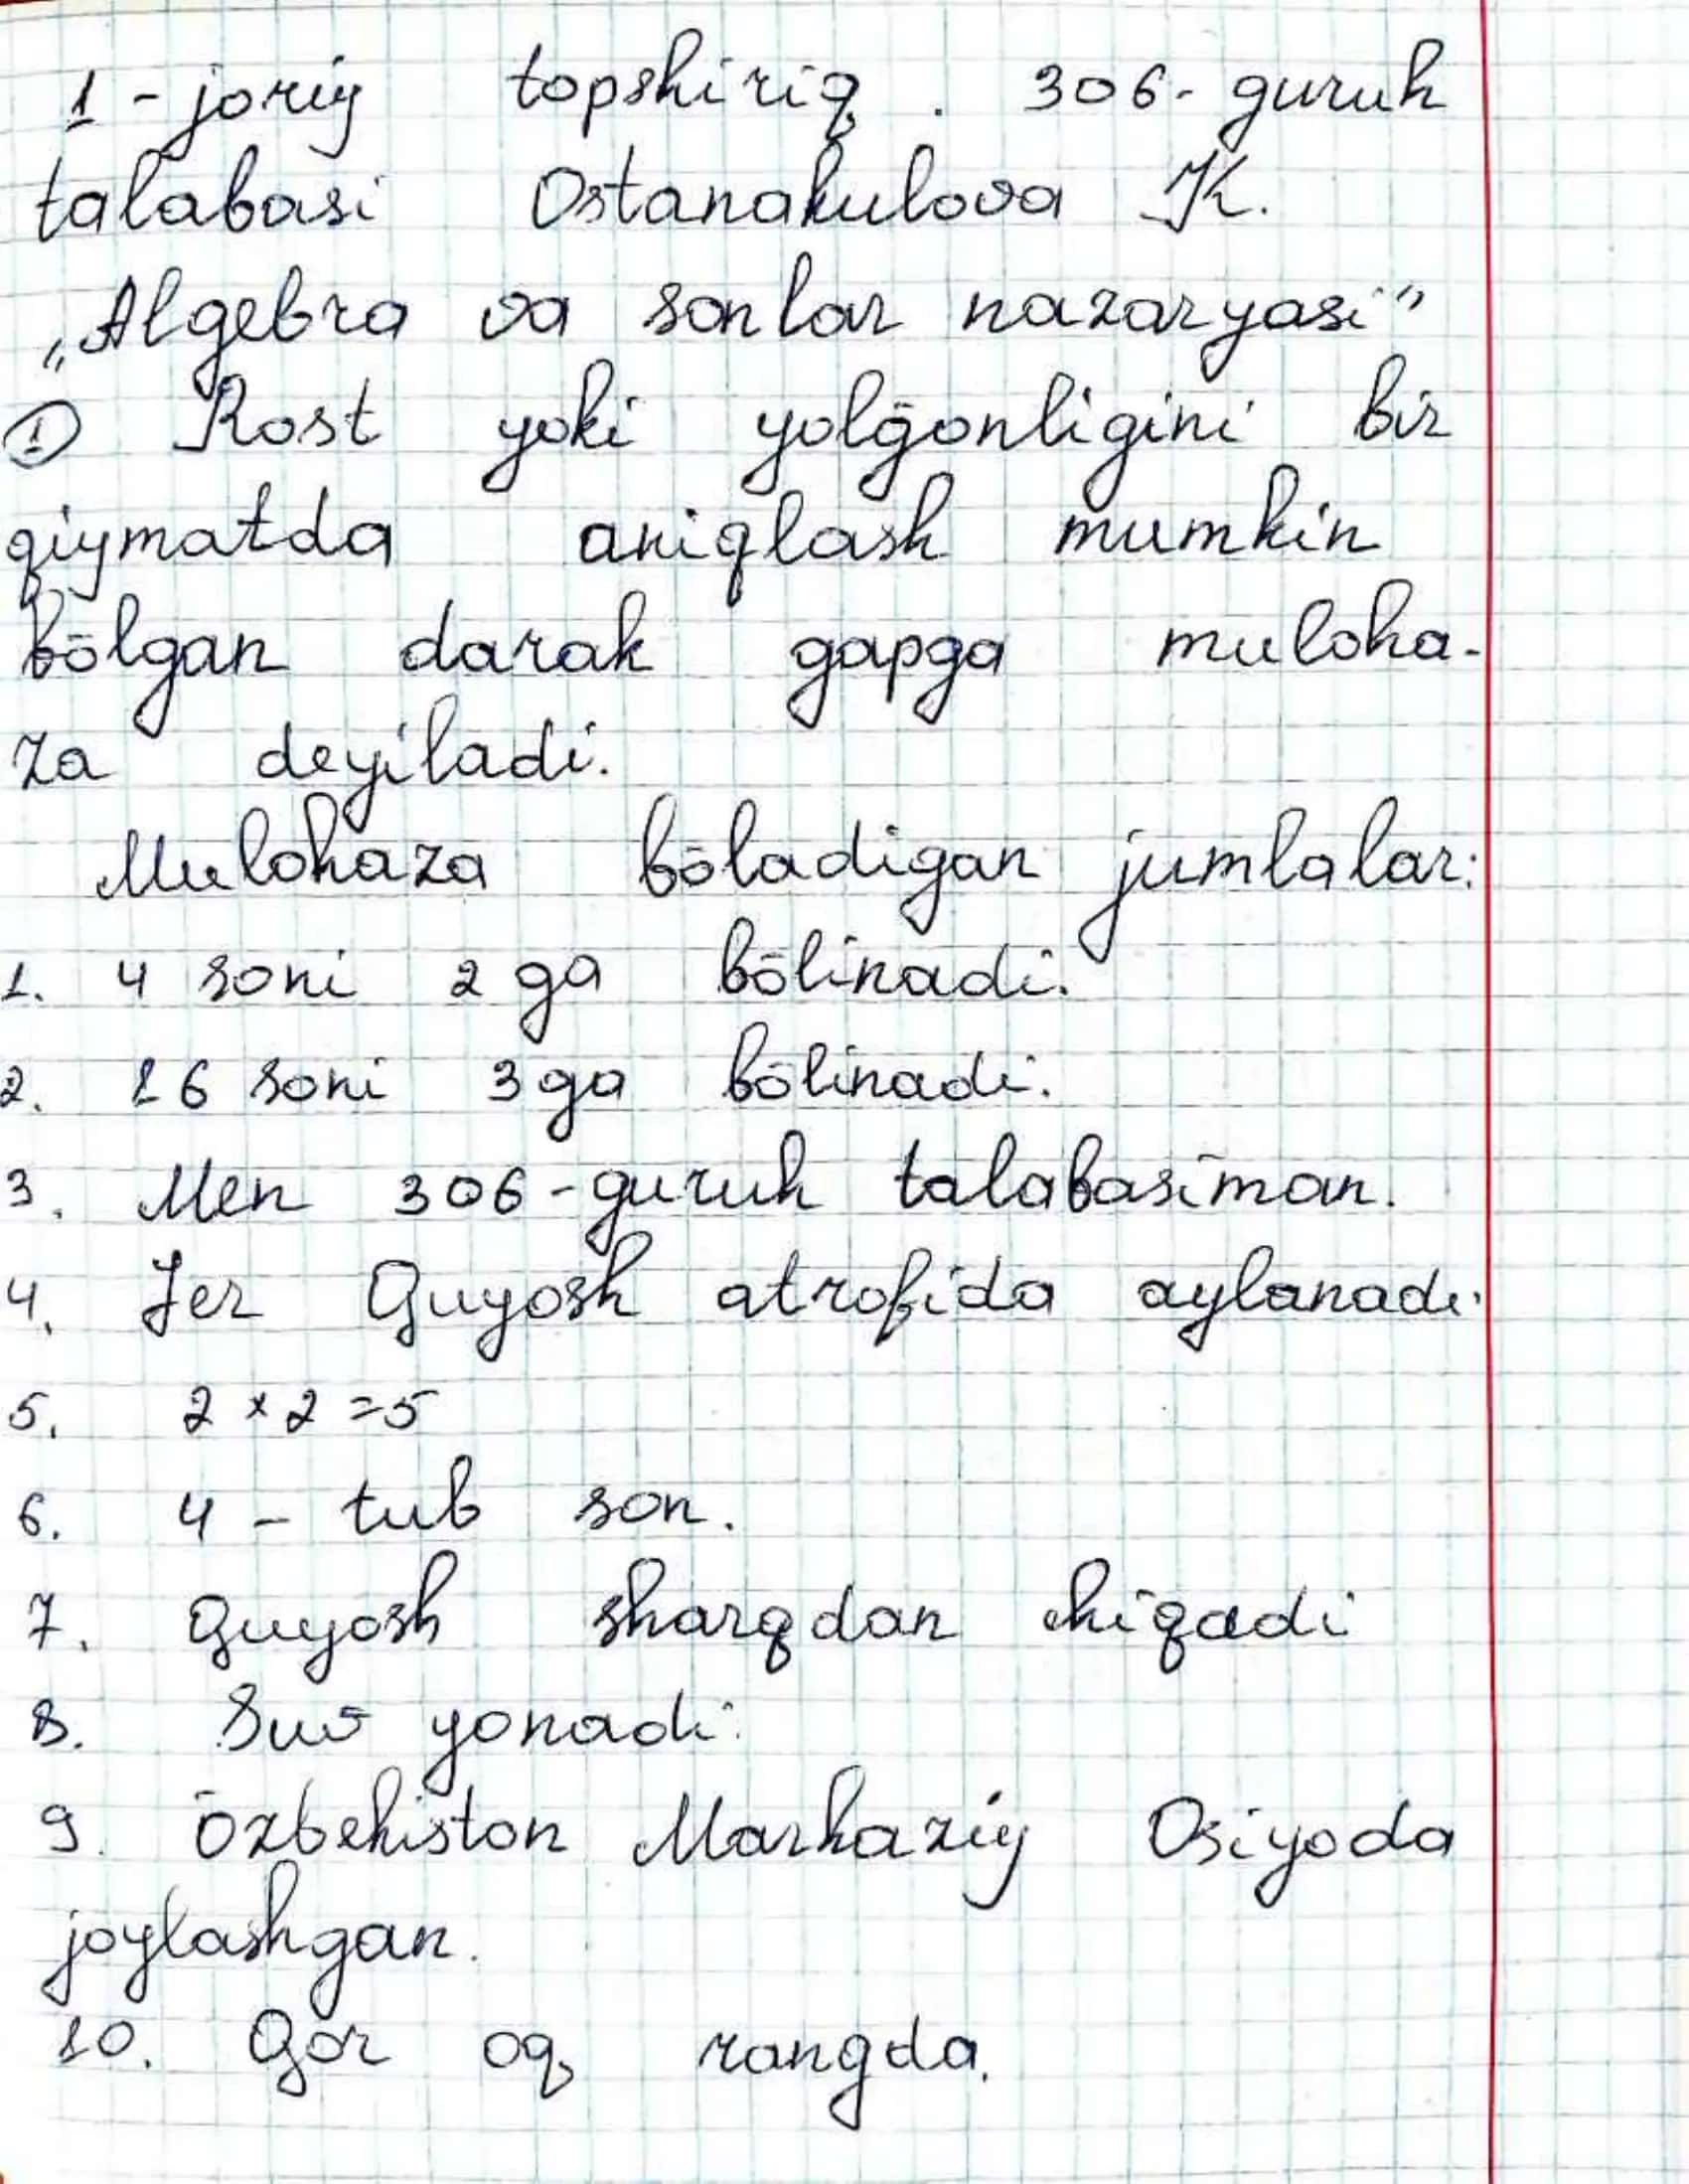 1 - joriy topshiriq. 306- guruh
talabasi Ostanakulova K.
„Algebra va sonlar nazaryasi"
① Rost yoki yolḡonligini bir
qiymatda aniqlash mumkin
bōlgan darak gapga muloha-
za deyiladi.
Mulohaza bōladigan jumlalar:
1. 4 soni 2 ga bōlinadi.
2. 16 soni 3 ga bōlinadi.
3. Men 306-guruh talabasiman.
4. Yer Quyosh atrofida aylanadi.
5. 2 × 2 = 5
6. 4 - tub son.
7. Quyosh sharqdan chiqadi
8. Suv yonadi.
9. Ōzbekiston Markaziy Osiyoda
joylashgan.
10. Qor oq rangda.